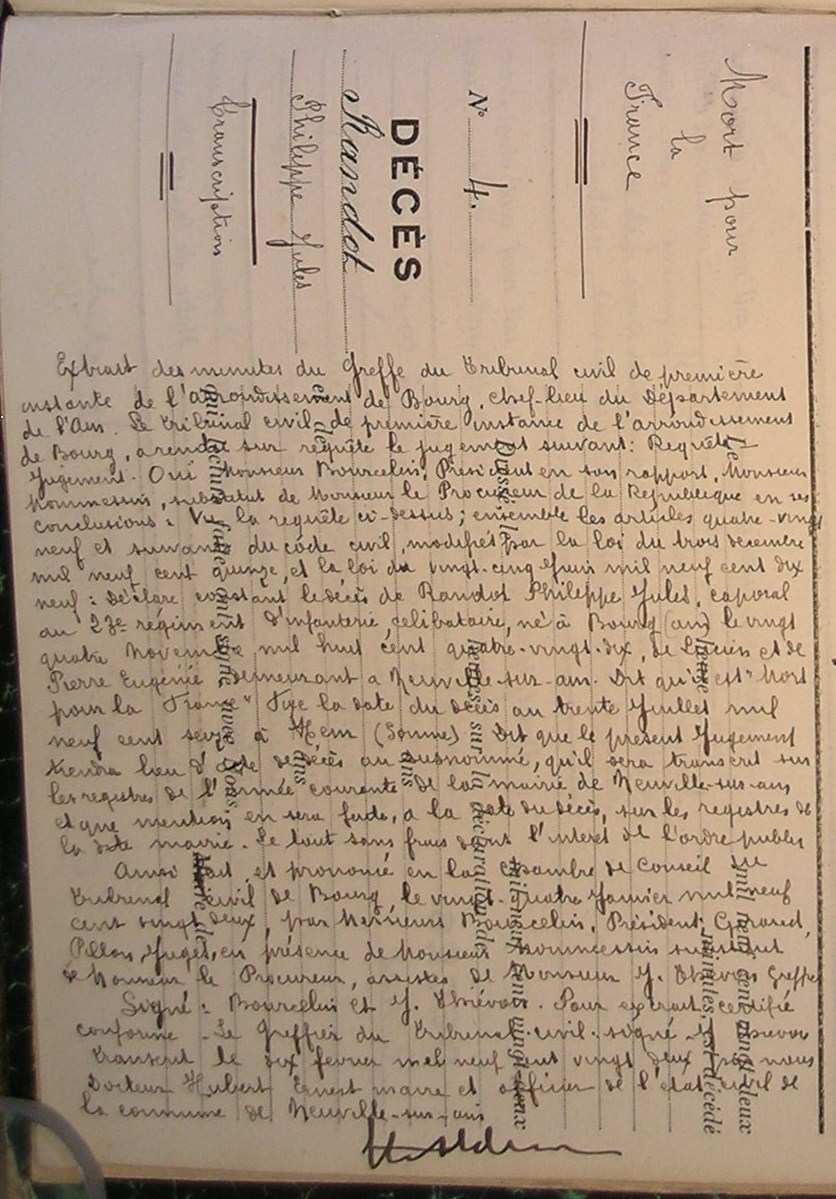 Mort pour
la
France
N° 4.
DÉCÈS
Randot
Philippe Jules
Transcription
Extrait des minutes du Greffe du Tribunal civil de première
instance de l'arrondissement de Bourg, chef-lieu du Département
de l'Ain. Le Tribunal civil de première instance de l'arrondissement
de Bourg, a rendu sur requête le jugement suivant: Requête
Jugement. Oui Monsieur Bourcelin, Président en son rapport, Monsieur
Mommessin, substitut de Monsieur le Procureur de la République en ses
conclusions: Vu la requête ci-dessus; ensemble les articles quatre-vingt
neuf et suivants du code civil, modifiés par la loi du trois décembre
mil neuf cent quinze, et la loi du vingt-cinq juin mil neuf cent dix
neuf: Déclare constant le décès de Randot Philippe Jules, caporal
au 23e régiment d'infanterie, célibataire, né à Bourg (ain) le vingt
quatre Novembre mil huit cent quatre-vingt-dix, de et de
Pierre Eugénie demeurant à Neuville-sur-ain. Dit qu'il est "Mort
pour la France" Fixe la date du décès au trente Juillet mil
neuf cent seize à Hem (Somme) Dit que le présent Jugement
tiendra lieu d'acte de décès au susnommé, qu'il sera transcrit sur
les registres de l'année courante de la mairie de Neuville-sur-ain
et que mention en sera faite, a la date du décès, sur les registres de
la dite mairie. Le tout sans frais dans l'intérêt de l'ordre public
Ainsi fait et prononcé en la Chambre de Conseil du
Tribunal civil de Bourg, le vingt-quatre Janvier mil neuf
cent vingt deux, par Messieurs Bourcelin, Président, Girared,
Pillon, Juges, en présence de Monsieur Mommessin substitut
de Monsieur le Procureur, assistés de Monsieur J. Thévois Greffier
Signé: Bourcelin et J. Thévois. Pour extrait certifié
conforme. Le Greffier du Tribunal civil signé J. Thévois
Transcrit le dix février mil neuf cent vingt deux par nous
Docteur Hubert Ernest maire et officier de l'état civil de
la commune de Neuville-sur-ain
Le
mil neuf cent vingt-deux
heure
minutes, est décédé
Dressé le
mil neuf cent vingt-deux
heures sur la déclaration de
ans
et de
ans
qui, lecture faite, ont signé avec Nous
Maire de